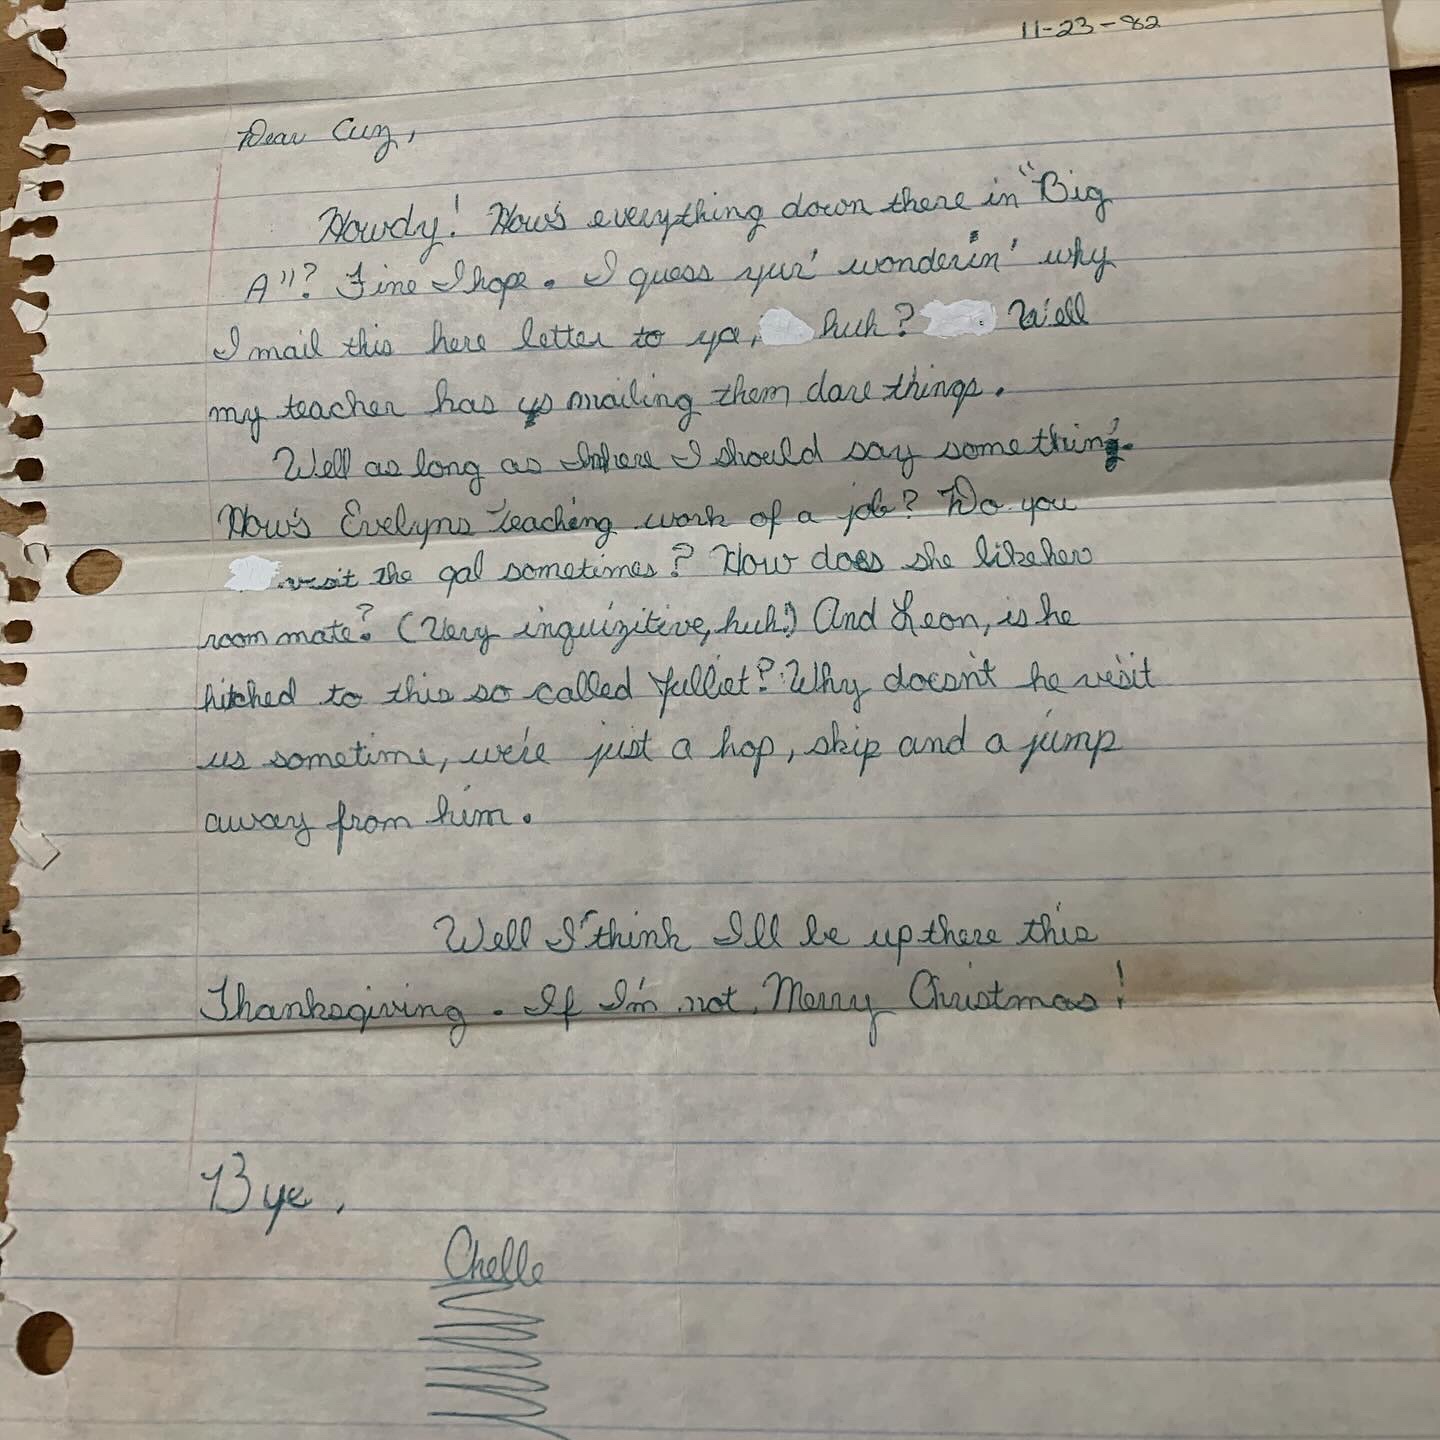 11-23-82
Dear Cuz,
Howdy! How's everything down there in "Big
A"? Fine I hope. I guess yur' wonderin' why
I mail this here letter to ya, huh? Well
my teacher has us mailing them dare things.
Well as long as I'm here I should say something.
How's Evelyns teaching work of a job? Do you
visit the gal sometimes? How does she like her
room mate? (Very inquizitive, huh?) And Leon, is he
hitched to this so called Julliet? Why doesn't he visit
us sometime, we're just a hop, skip and a jump
away from him.
Well I think I'll be up there this
Thanksgiving. If I'm not, Merry Christmas!
Bye,
Chelle